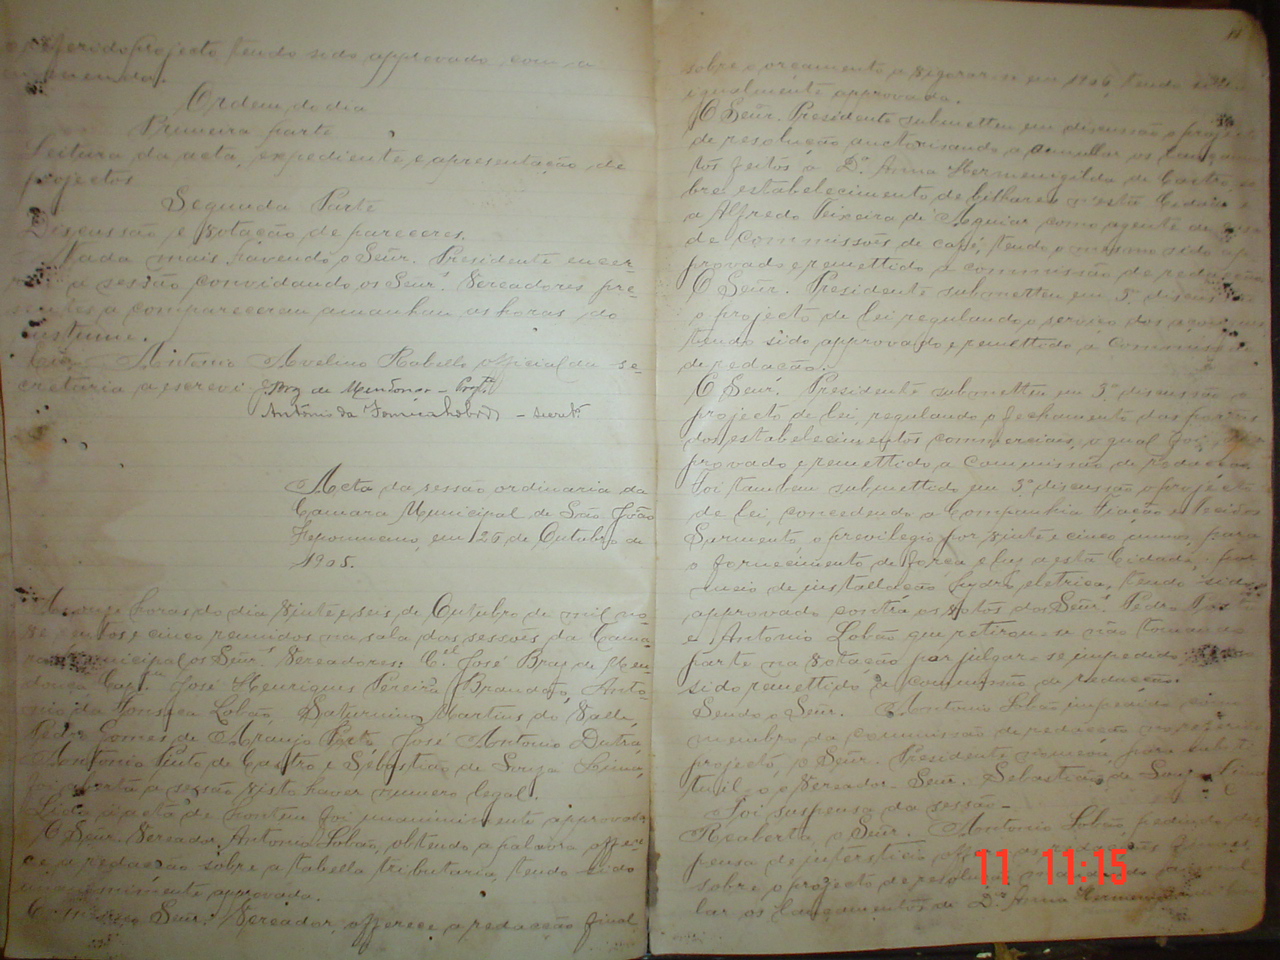 referido projecto, tendo sido approvado com a
emenda.
Ordem do dia
Primeira parte
Leitura da acta, expediente e apresentação de
projectos
Segunda Parte
Discussão e votação de pareceres.
Nada mais havendo o Señr. Presidente encer-
a sessão convidando os Señrs. Vereadores pre-
sentes a comparecerem amanhan as horas do
custume.
Eu, Antonio Avelino Rabello official da se-
cretaria a escrevi
Braz de Mendonça - Presdte.
Antonio da Fonseca Lobão - secretº
Acta da sessão ordinaria da
Camara Municipal de São João
Nepomuceno, em 26 de Outubro de
1905.
As onze horas do dia vinte e seis de Outubro de mil no-
ve centos e cinco reunidos na sala das sessões da Cama-
ra Municipal os Señrs. Vereadores: Cel. José Braz de Men-
donça, Capm. José Henriques Pereira Brandão, Anto-
nio da Fonseca Lobão, Saturnino Martins do Valle,
Pedro Gomes de Araujo Porto, José Antonio Dutra,
Antonio Pinto de Castro e Sebastião de Souza Lima,
foi aberta a sessão visto haver numero legal.
Lida a acta de hontem foi unanimimente approvada.
O Señr. Vereador, Antonio Lobão, obtendo a palavra offere-
ce a redacção sobre a tabella tributaria, tendo sido
unanimimente approvada.
O mesmo Señr. Vereador, offerece a redacção final
sobre o orçamento a vigorar-se em 1906, tendo sido
igualmente approvada.
O Señr. Presidente submetteu em discussão o projecto
de resolução auctorisando a annullar os lançamen-
tos feitos a Dª. Anna Hermenigilda de Castro, so-
bre estabelecimento de bilhares n'esta Cidade e
a Alfredo Teixeira de Aguiar como agente de casa
de commissões de caffé, tendo o mesmo sido ap-
provado e remettido a commissão de redacção.
O Señr. Presidente submetteu em 3ª. discussão
o projecto de lei regulando o serviço dos açougues,
tendo sido approvado e remettido a Commissão
de redacção.
O Señr. Presidente submetteu em 3ª. discussão o
projecto de lei, regulando o fechamento das portas
dos estabelecimentos commerciais, o qual foi ap-
provado e remettido a Commissão de redacção.
Foi tambem submettido em 3ª. discussão o projecto
de lei, concedendo a Companhia Fiação e Tecidos
Sarmento, o previlegio por vinte e cinco annos, para
o fornecimento de força e luz a esta Cidade, por
meio de installação hydro eletrica, tendo sido
approvado contra os votos dos Señrs. Pedro Porto
e Antonio Lobão que retirou-se não tomando
parte na votação por julgar-se impedido
sido remettido a commissão de redacção.
Sendo o Señr. Antonio Lobão impedido como
membro da commissão de redacção no referido
projecto, o Señr. Presidente nomeou para substi-
tuil-o o Vereador Señr. Sebastião de Souza Lima
Foi suspensa da sessão -
Reaberta o Señr. Antonio Lobão, pedindo dis-
pensa de intersticio offerece as redacções finaes
sobre o projecto de resolução mandando annul-
lar os lançamentos de Dª. Anna Hermenigilda
11 11:15